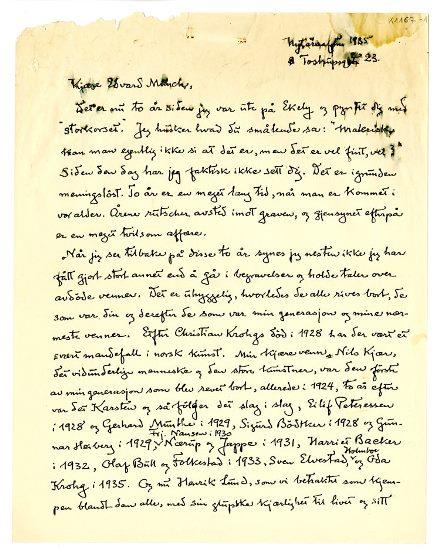 K1167-1
Nyttårsaften 1935
Tostrupsgt 23.
Kjære Edvard Munch,
Det er nu to år siden jeg var ute på Ekely og pyntet dig med
"storkorset." Jeg husker hvad du smålende sa: "Malerisk
kan man egentlig ikke si at det er, men det er vel fint, vel?"
Siden den dag har jeg faktisk ikke sett dig. Det er i grunden
meningsløst. To år er en meget lang tid, når man er kommet i
vor alder. Årene rutscher avsted imot graven, og gjensynet efterpå
er en meget tvilsom affære.
Når jeg ser tilbake på disse to år synes jeg nesten ikke jeg har
fått gjort stort annet end å gå i begravelser og holde taler over
avdøde venner. Det er uhyggelig, hvorledes de alle rives bort, de
som var din og derefter de som var min generasjon og mine nær-
meste venner. Efter Christian Krohgs død i 1928 har der vært et
svert mandefall i norsk kunst. Min kjære venn, Nils Kjær,
det vidunderlige menneske og den store kunstner, var den første
av min generasjon som blev revet bort, allerede i 1924, to år efter
var det Karsten og så følger det slag i slag, Eilif Peterssen
i 1928 og Gerhard Munthe i 1929, Sigurd Bødtker i 1928 og Gun-
nar Heiberg i 1929, Nærup og Jappe i 1931, Harriet Backer
Frj. Nansen i 1930
i 1932, Olaf Bull og Folkestad i 1933, Sven Elvestad, og Oda
Holmboe
Krohg i 1935. Og nu Henrik Lund, som vi betraktet som kjem-
pen blandt dem alle, med sin glupske kjærlighet til livet og sitt